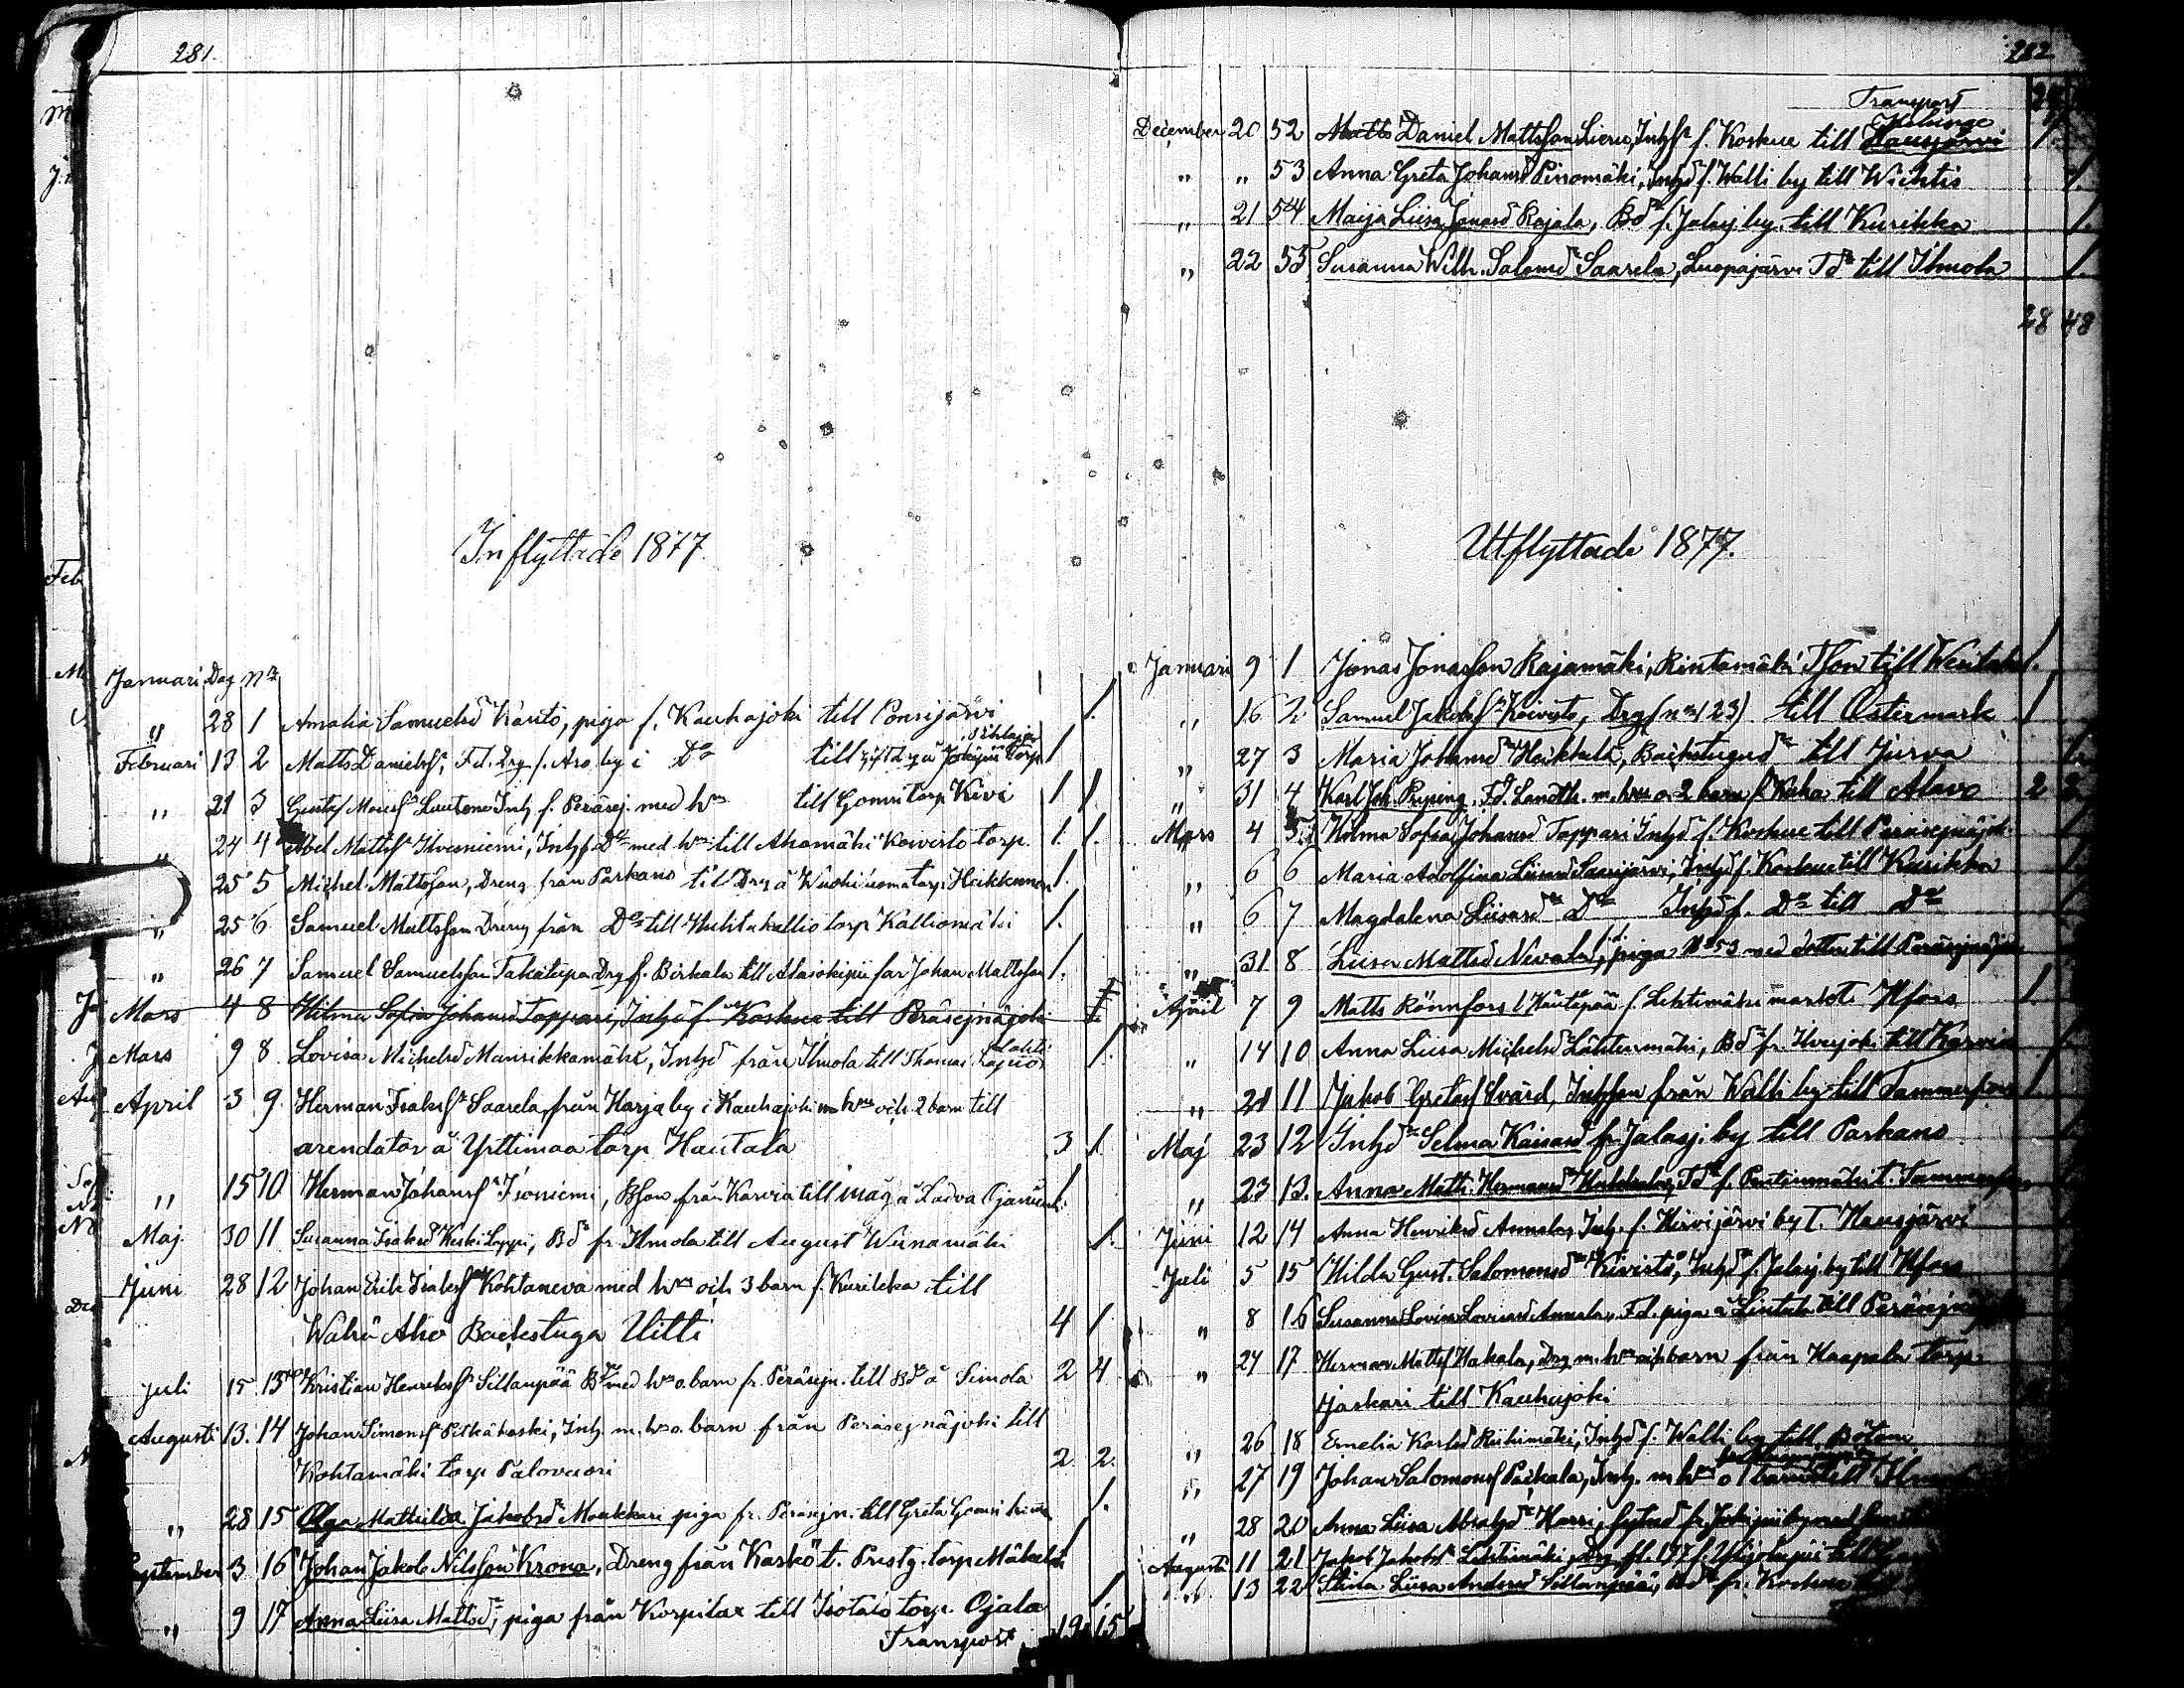 281.
Inflyttade 1877.
Januari Dag N:o
" 28 1 Amalia Samuelsd Kauto, piga f. Kauhajoki till Ponsijärvi 1.
Februari 13 2 Matts Danielss, Fd. Drg f. Aro by i Do till Jokipii Torp 1
" 21 3 Gustaf Luutone Inh f. Peräsej. med h:u till Gomsi torp Kivi 1 1
" 24 4 Abel Mattss Ilvesniemi, Inh f. Do med h:u till Ahomäki Koivisto torp. 1. 1.
25 5 Michel Mattsson, Dreng från Parkano till Drg å Wuohiluoma torp Heikkinen 1.
" 25 6 Samuel Mattsson Dreng från Do till Huhtakallio torp Kalliomäki 1.
" 26 7 Samuel Samuelsson Takatupa Drg f. Birkala till Alajokipii far Johan Mattsson 1.
Mars 4 8 Hilma Sofia Johansd Toppari, Inhd f. Koskue till Peräsejnäjoki 1
Mars 9 8. Lovisa Michelsd Mansikkamäki, Inhd från Ilmola till Thomas Lahti 1.
April 3 9. Herman Isakss Saarela, från Harja by i Kauhajoki m h:u och 2 barn till
arendator å Yrttimaa torp Hautala 3 1.
" 15 10 Herman Johanss Isoniemi, BSon från Karvia till måg å Ladva 1.
Maj. 30 11 Susanna Isaksd Keski Loppi, Bd fr Ilmola till August Wiinamäki 1.
Juni 28 12 Johan Erik Isakss Kohtaneva med h:u och 3 barn f. Kurikka till
Wähä Aho Backstuga Uitti 4 1
Juli 15 13 Kristian Henrikss Sillanpää Bd med h:u o. barn fr. Peräsejn. till Bd å Simola 2 4
Augusti 13. 14 Johan Simonss Pitkäkoski, Inh. m. h:u o. barn från Peräsejnäjoki till
Kohtamäki torp Palovuori 2 2.
" 28 15 Olga Mathilda Jakobsd Moukkari piga fr. Peräsejn. till Greta 1.
September 3 16 Johan Jakob Nilsson Krona, Dreng från Kaskö t. Prestg. torp Mäkelä 1
" 9 17 Anna Liisa Mattsd, piga från Korpilax till Isotalo torp. Ojala 1
Transport 19 15
282
Transport
December 20 52 Matts Daniel Mattsson Lieru, Inhs f. Koskue till Hausjärvi 1.
Helsinge
" " 53 Anna Greta Johansd Pirromäki, Inhd f. Walli by till Wichtis 1.
" 21 54 Maija Liisa Jonasd Rajala, Bd f. Jalasj. by. till Kurikka 1.
" 22 55 Susanna Wilh. Salomsd Saarela, Luopajärvi Td till Ilmola 1.
28 48
Utflyttade 1877.
Januari 9 1 Jonas Jonasson Rajamäki, Rintamäki TSon till 1.
" 16 2 Samuel Jakobss Koivisto, Drg (n:o 123) till Östermark 1
" 27 3 Maria Johansd Heikkilä, Backstugud till Jurva 1.
" 31 4 Karl Joh. Ryping, Fd. Landth. m. h:u o. 2 barn f. Kuha till Alavo 2 2
Mars 4 5. Hilma Sofia Johansd Toppari Inhd f. Koskue till Peräsejnäjok 1
" 6 6 Maria Adolfina Liisasd Saarijärvi, Inhd f. Koskue till Kurikka 1
" 6 7 Magdalena Liisasd Do Inhd f. Do till Do 1
" 31 8 Liisa Mattsd Nevala, piga N:o 53 med dotter till Peräsejnäjoki
April 7 9 Matts Rönnfors l. Käutepää f. Lehtimäki Hfors 1.
" 14 10 Anna Liisa Michelsd Lähteenmäki, Bd fr. Ilvesjoki till Karvia 1
" 21 11 Jakob Gretass Svärd, Inhson från Walli by till Tammerfors 1.
Maj 23 12 Inhd Selma Kaisasd fr. Jalasj. by till Parkano
" 23 13. Anna Math. Hermansd Huhtala, Td f. Pentinmäki t. Tammerfors
Juni 12 14 Anna Henriksd Annala, Inh. f. Hirvijärvi by t. Hausjärvi
Juli 5 15 Hilda Gust. Salomonsd Kivistö, Inhd f. Jalasj. by till Hfors
" 8 16 Susanna Lovisa Lovisasd Annala, Fd. piga å Lintala till Peräsejnäj
" 24 17 Herman Mattss Hakala, Drg m. h:u och barn från Haapala torp
Jaskari till Kauhajoki
" 26 18 Emelia Karlsd Riihimäki, Inhd f. Walli by till Bötom
" 27 19 Johan Salomonss Paikala, Inh. m h:u o 1 barn till
" 28 20 Anna Liisa Abrahsd Harri, fr. Jokipii by med
Augusti 11 21 Jakob Jakobss Lehtimäki, Drg fl. 137 f. Ylijokipii till
" 13 22 Stina Liisa Andersd Sillanpää, Bd fr. Koskue